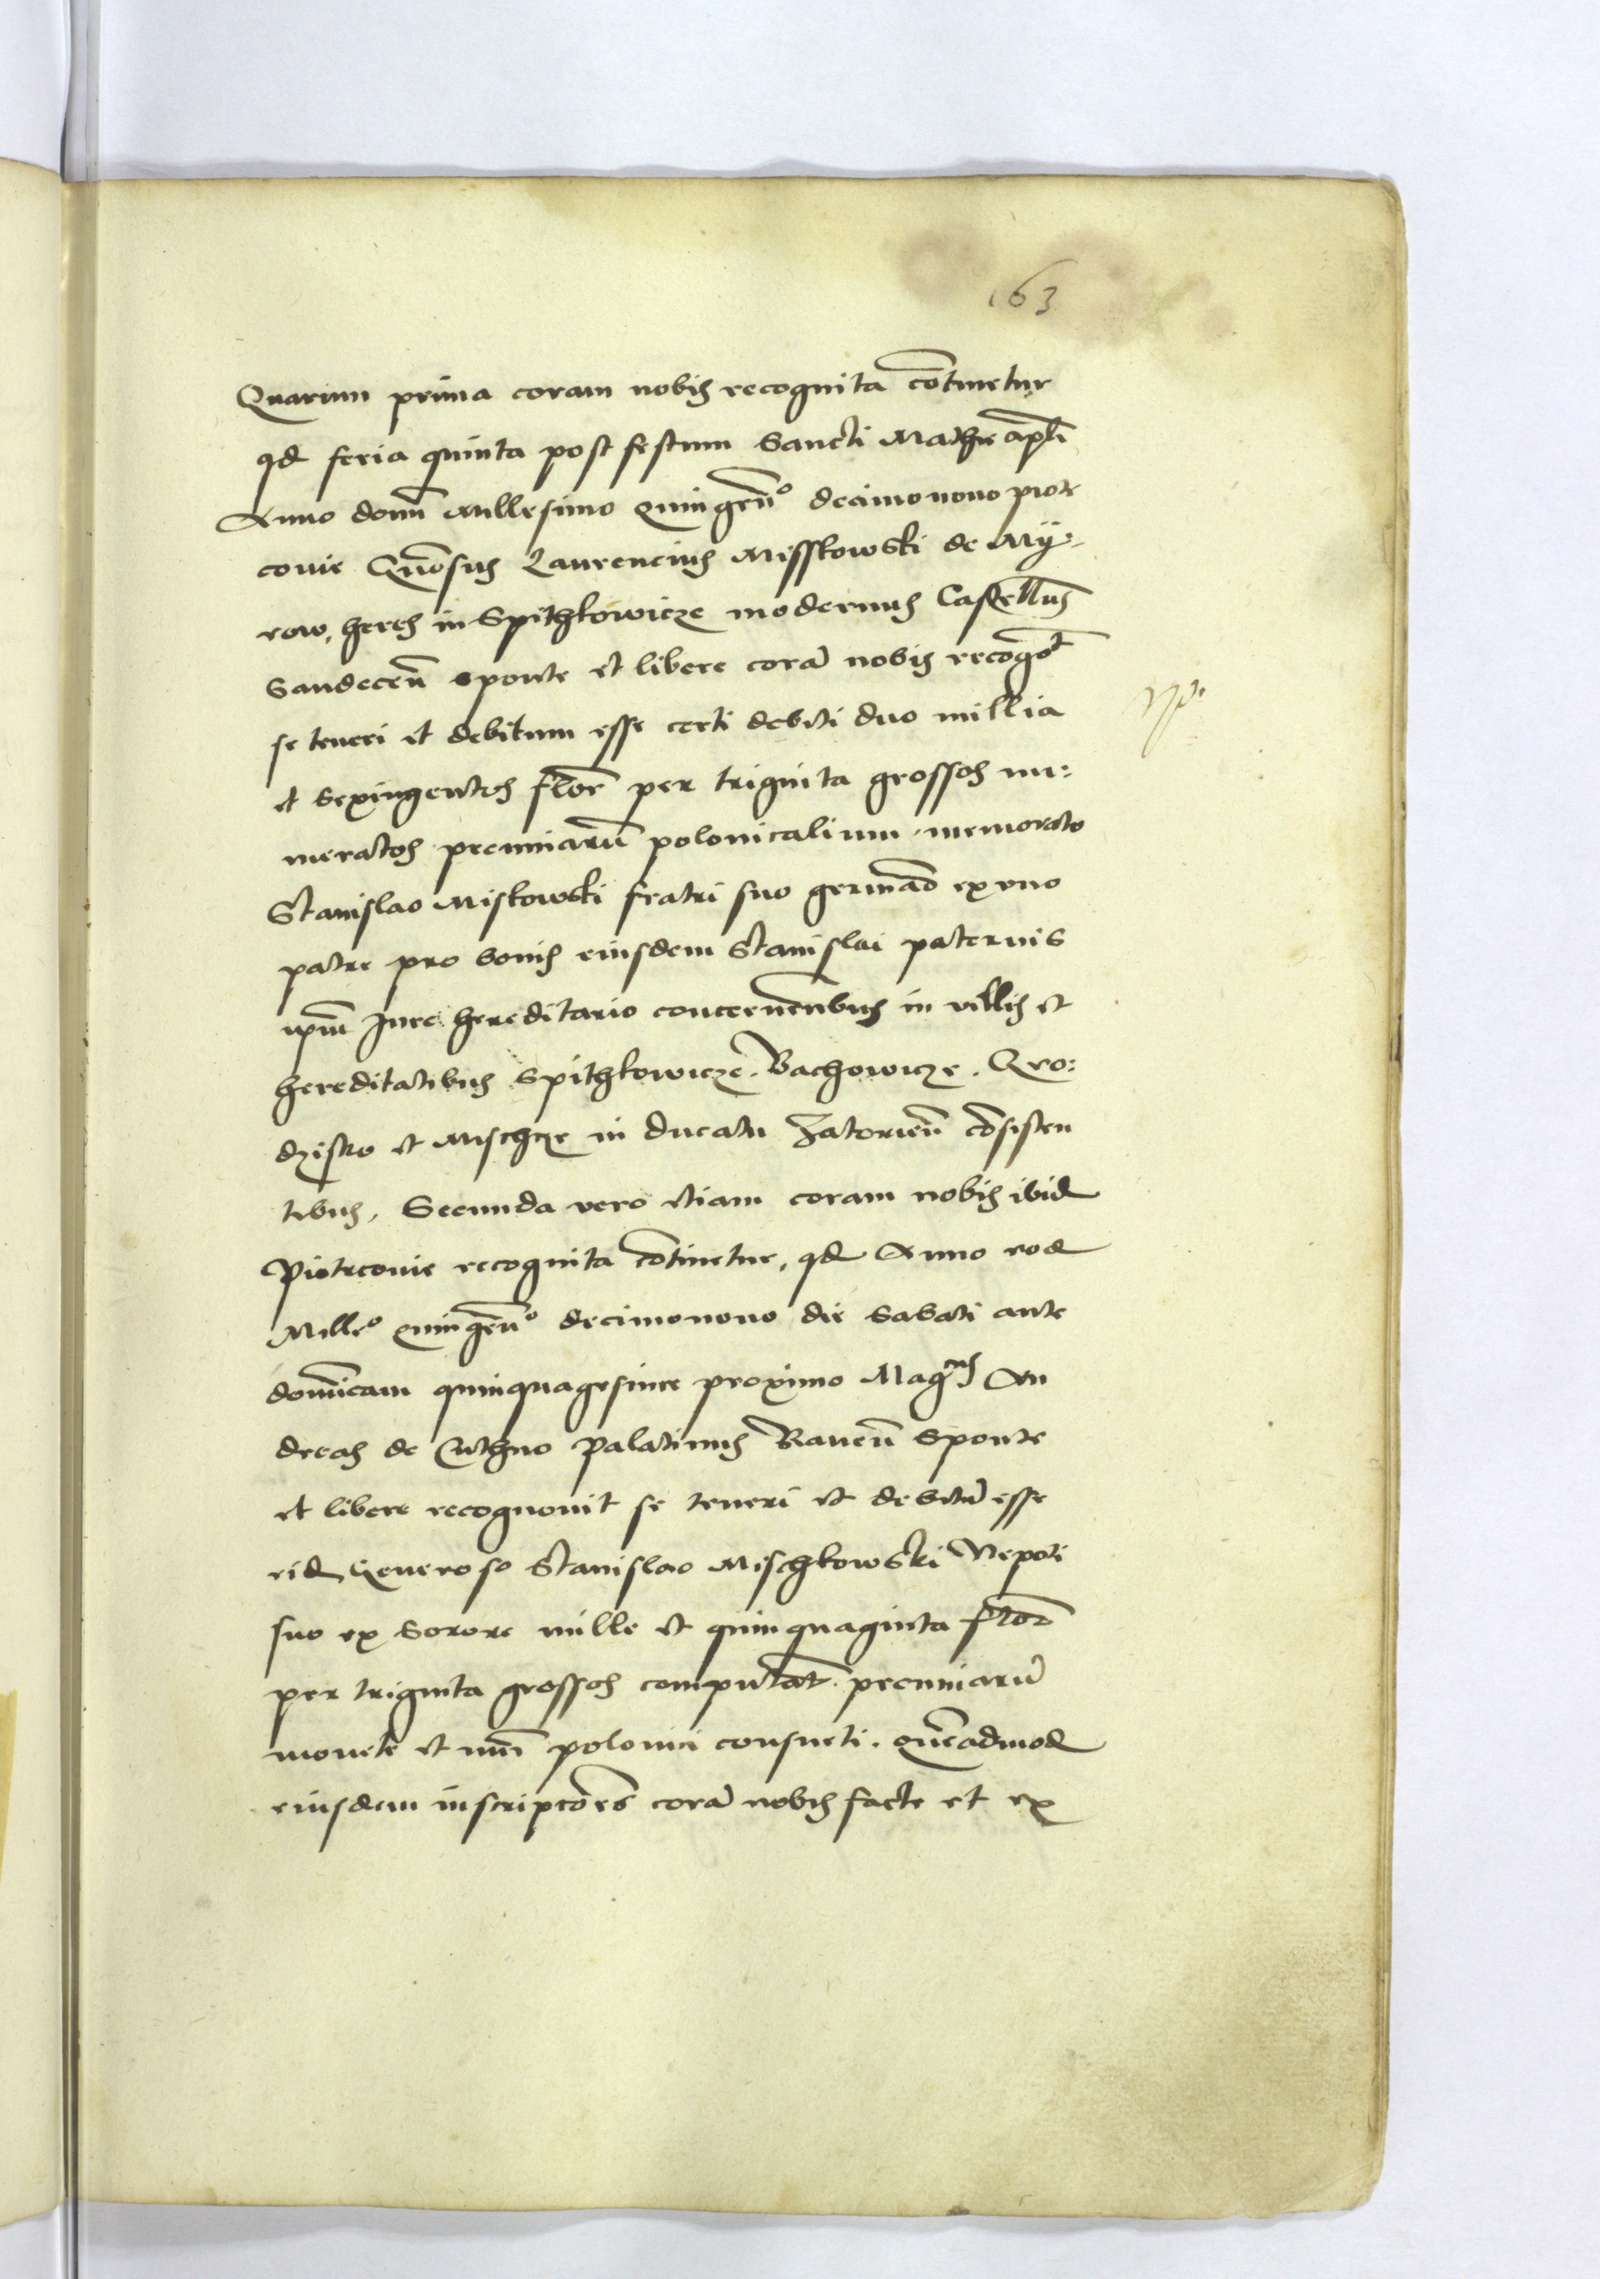 163
Quarum prima coram nobis recognita cōtinetur
qd feria quinta post festum Sancti Mathie apli
Anno domī Millesimo quingen̄º decimonono piotr
covie Gn̄osus Laurencius Misskowski de Mÿ-
row, heres in Spithkowicze modernus Castellan̄us
Sandecen̄ sponte et libere corā nobis recogōt
se teneri et debitum esse certi debiti duo millia
et sexingentos flor̄ per triginta grossos nu:
meratos pecuniarū polonicalium memorato
Stanislao Miskowski fratri suo germāo ex uno
patre pro bonis eiusdem Stanislai paternis
ipm̄ Jure hereditario concernēn̄bus in villis et
hereditatibus Spithkowicze. Bachowicze. Gro:
dzisko et Mschcze in ducatu Zatorien̄ cōsisten
tibus. Secunda vero etiam coram nobis ibid
Piotrcovie recognita cōtinetur, qd Anno eod
Milleº quingen̄º decimonono die Sabati ante
domīcam quinquagesime proximo Mag̃cus An
dreas de Cuthno Palatinus Raven̄ Sponte
et libere recognovit se teneri et debitū esse
eid Generoso Stanislao Mischkowski Nepoti
suo ex Sorore mille et quinquaginta flor̄
per triginta grossos computat̄. pecuniarū
monete et nūi polonici consueti. quēadmod
eiusdem inscripcōes corā nobis facte et ex